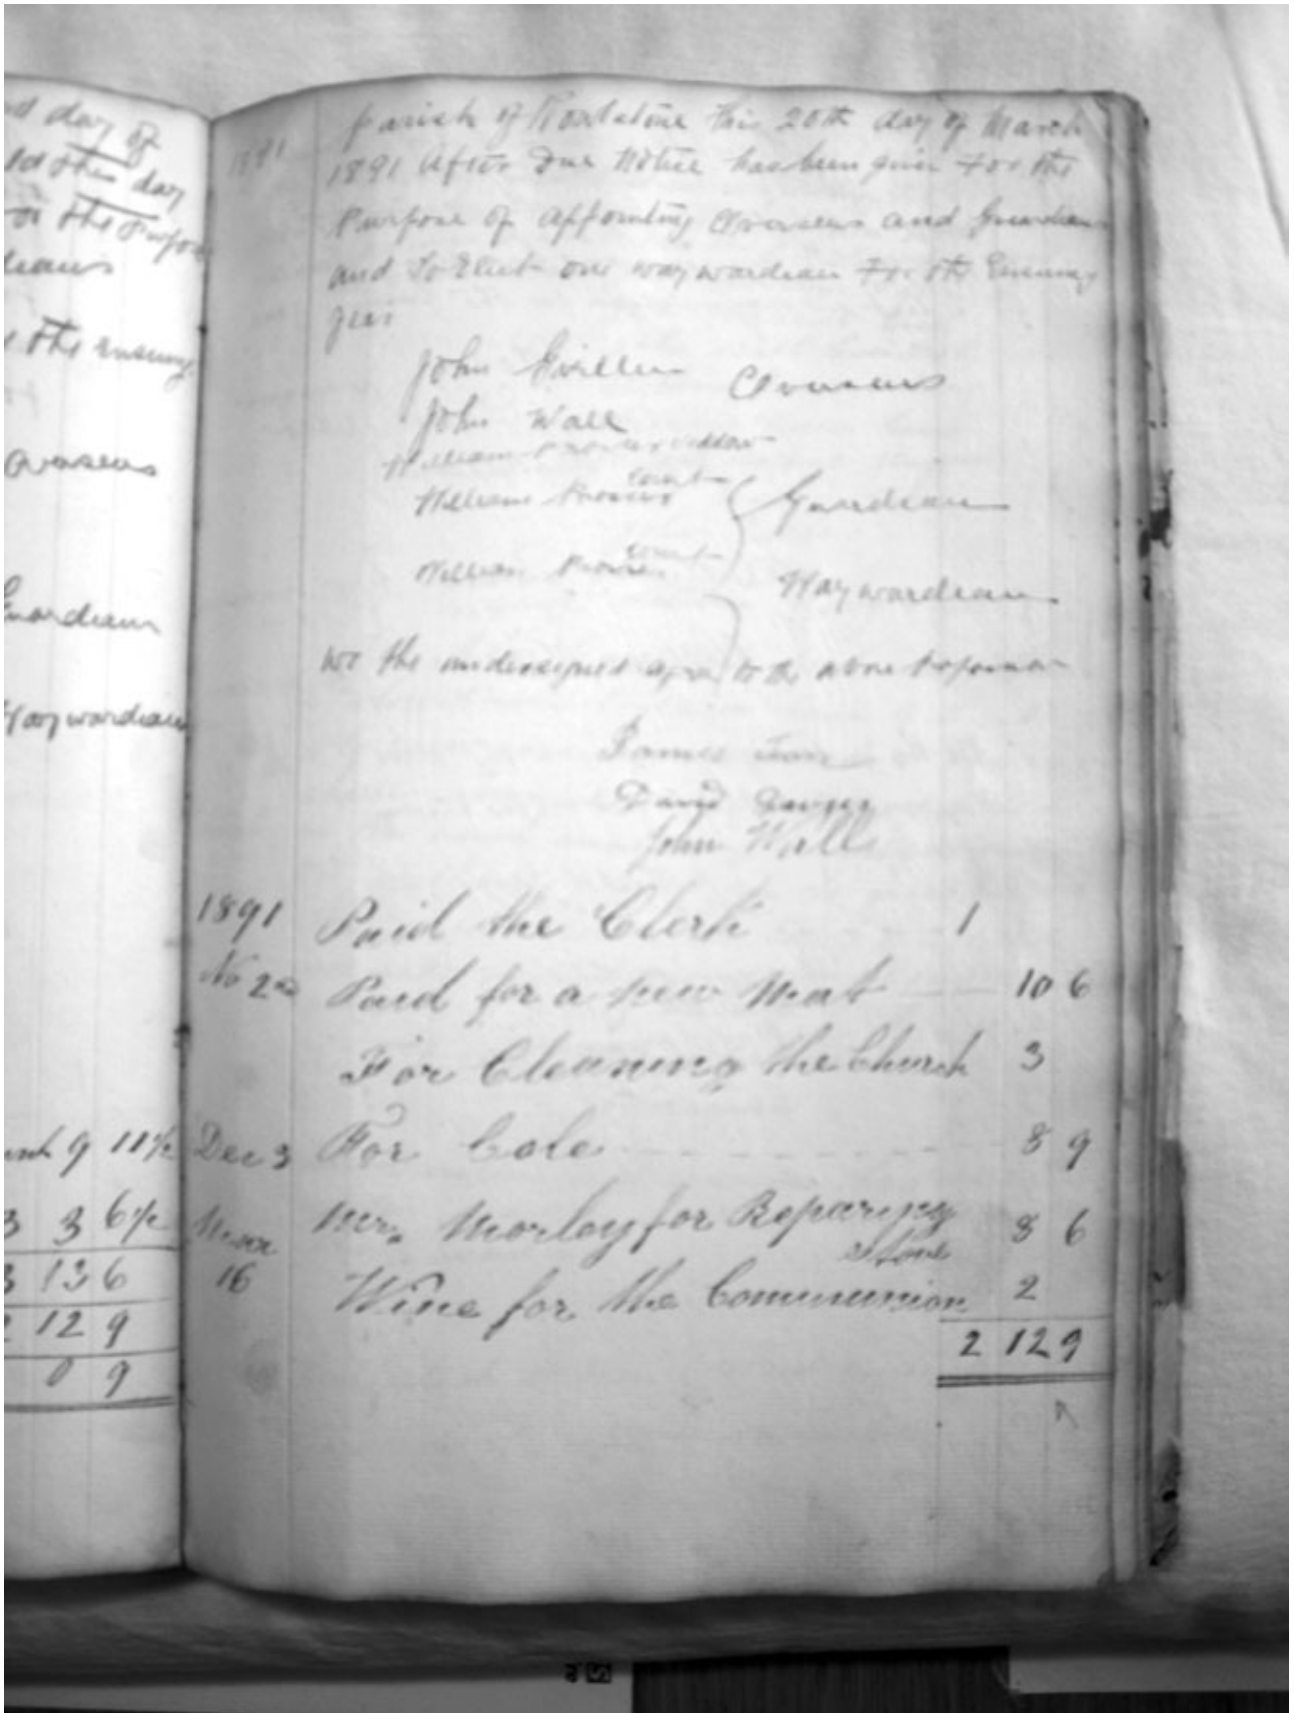 d day of
day
or the Purpose
the ensuing
Overseers
Guardean
Waywardean
9 11½
3 3 6½
3 13 6
2 12 9
0 9
1891
parish of this 20th day of March
1891 After Due Notice has been given For the
Purpose of Appointing Overseers and Guardean
and To Elect one waywardean For the Ensuing
year
John Overseers
John Wall
William
William Prosser Court Guardean
William Prosser Court Waywardean
we the undersigned agree to the above
James
David
John Wall
1891 Paid the Clerk 1
No 2nd Paid for a new Mat 10 6
For Cleaning the Church 3
Dec 3 For Cole 8 9
Mr. Morley for Reparing 8 6
Stove
16 Wine for the Communion 2
2 12 9